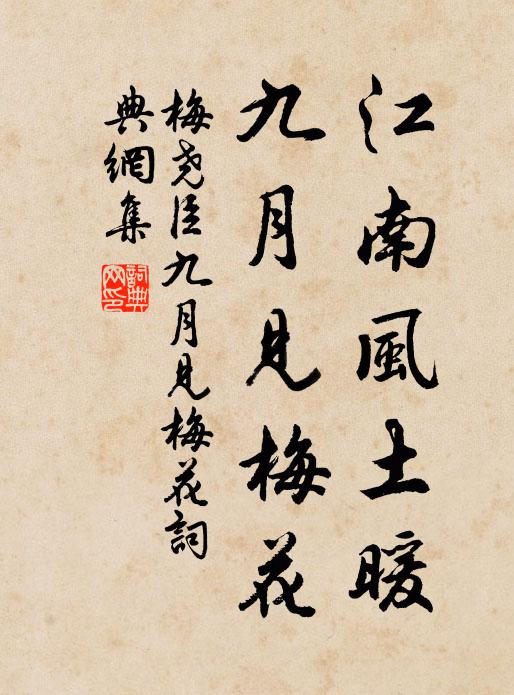 江南風土暖
九月見梅花
梅堯臣九月見梅花詞
典網集
詞典网印